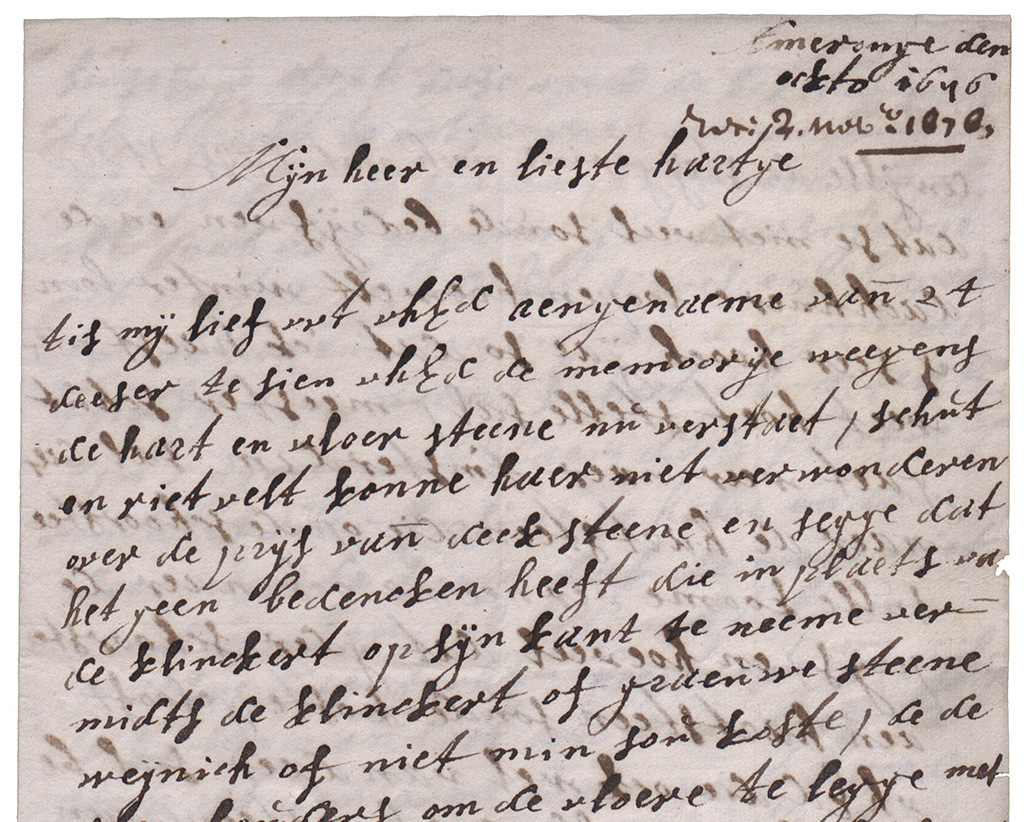 Ameronge den
ockto 1676
Reci 2. nov. 1676.
Mijn heer en lieste hartge
tis mij lief uut uhEd aengenaeme vann 24
deeser te sien uhEd de memoorije weegens
de hart en vloer steene nu verstaet, schut
en rietvelt konne haer niet verwonderen
over de prijs vann deese steene en segge dat
het geen bedencken heeft die in plaets va
de klinckert op sijn kant te neeme ver
midts de klinckert of graeuwe steene
weijnich of niet min sou koste, de de
om de vloere te legge met